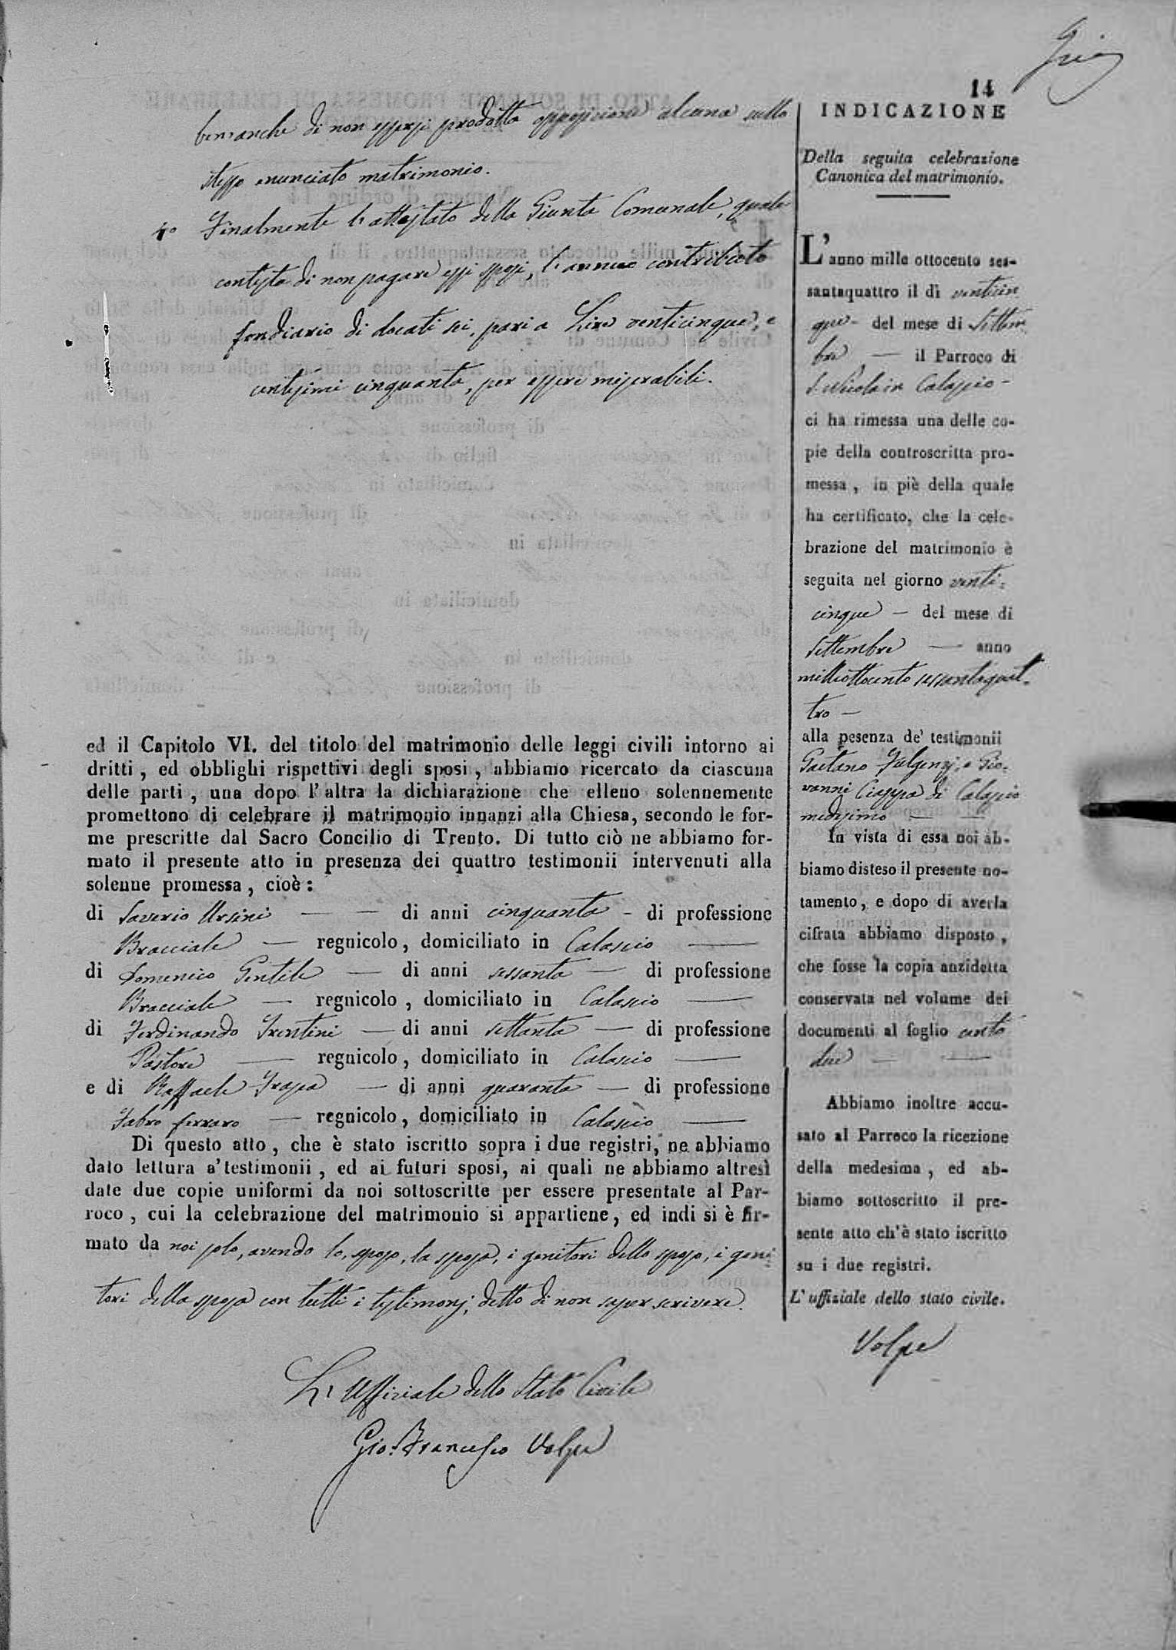 14
benanche di non essersi prodotta opposizione alcuna sullo
stesso enunciato matrimonio.
4° Finalmente l'attestato della Giunta Comunale, quale
contesta di non pagare essi sposi, l'annuo contributo
fondiario di docati sei, pari a Lire venticinque, e
centesimi cinquanta, per essere miserabili.
ed il Capitolo VI. del titolo del matrimonio delle leggi civili intorno ai
dritti , ed obblighi rispettivi degli sposi , abbiamo ricercato da ciascuna
delle parti , una dopo l'altra la dichiarazione che elleno solennemente
promettono di celebrare il matrimonio innanzi alla Chiesa, secondo le for-
me prescritte dal Sacro Concilio di Trento. Di tutto ciò ne abbiamo for-
mato il presente atto in presenza dei quattro testimonii intervenuti alla
solenne promessa , cioè :
di Saverio Ursini — — di anni cinquanta - di professione
Bracciale — regnicolo, domiciliato in Calascio —
di Domenico Gentile — di anni sessanta — di professione
Bracciale — regnicolo , domiciliato in Calascio —
di Ferdinando Frentini — di anni settanta — di professione
Pastore — regnicolo, domiciliato in Calascio —
e di Raffaele Frasca — di anni quaranta — di professione
Fabro ferraro — regnicolo, domiciliato in Calascio —
Di questo atto , che è stato iscritto sopra i due registri, ne abbiamo
dato lettura a' testimonii , ed ai futuri sposi, ai quali ne abbiamo altresì
date due copie uniformi da noi sottoscritte per essere presentate al Par-
roco , cui la celebrazione del matrimonio si appartiene, ed indi si è fir-
mato da noi solo, avendo lo sposo, la sposa, i genitori dello sposo, i geni-
tori della sposa con tutti i testimonj, detto di non saper scrivere.
L'Uffiziale dello Stato Civile
Gio: Francesco Volpe
INDICAZIONE
Della seguita celebrazione
Canonica del matrimonio.
L'anno mille ottocento ses-
santaquattro il dì venticin
que - del mese di Settem
bre — il Parroco di
S. Nicola in Calascio -
ci ha rimessa una delle co-
pie della controscritta pro-
messa , in piè della quale
ha certificato, che la cele-
brazione del matrimonio è
seguita nel giorno venti-
cinque — del mese di
Settembre — anno
milleottocento sessantaquat-
tro —
alla pesenza de' testimonii
Gaetano Fulgenzj, e Gio-
vanni Ciappa di Calascio
medesimo —
In vista di essa noi ab-
biamo disteso il presente no-
tamento, e dopo di averla
cifrata abbiamo disposto ,
che fosse la copia anzidetta
conservata nel volume dei
documenti al foglio cento
due —
Abbiamo inoltre accu-
sato al Parroco la ricezione
della medesima , ed ab-
biamo sottoscritto il pre-
sente atto ch'è stato iscritto
su i due registri.
L' uffiziale dello stato civile.
Volpe